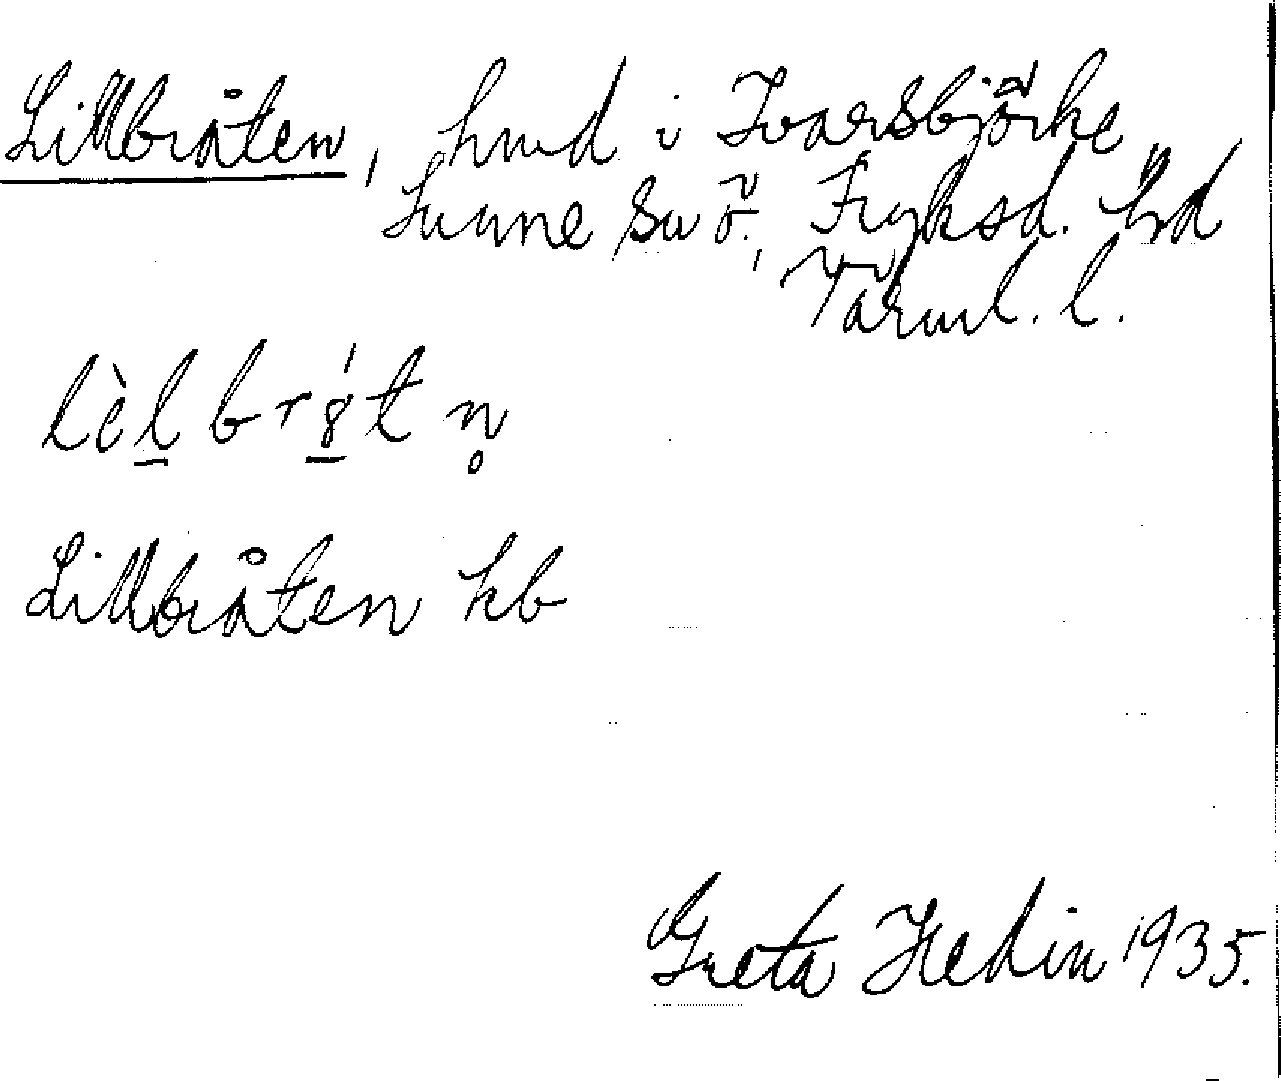 Lillbråten, hmd i Ivarsbjörke
Sunne sn ö., Fryksd. hd
Värml. l.
lèl brȣ́t n̥
Lillbråten kb
Greta Hedin 1935.